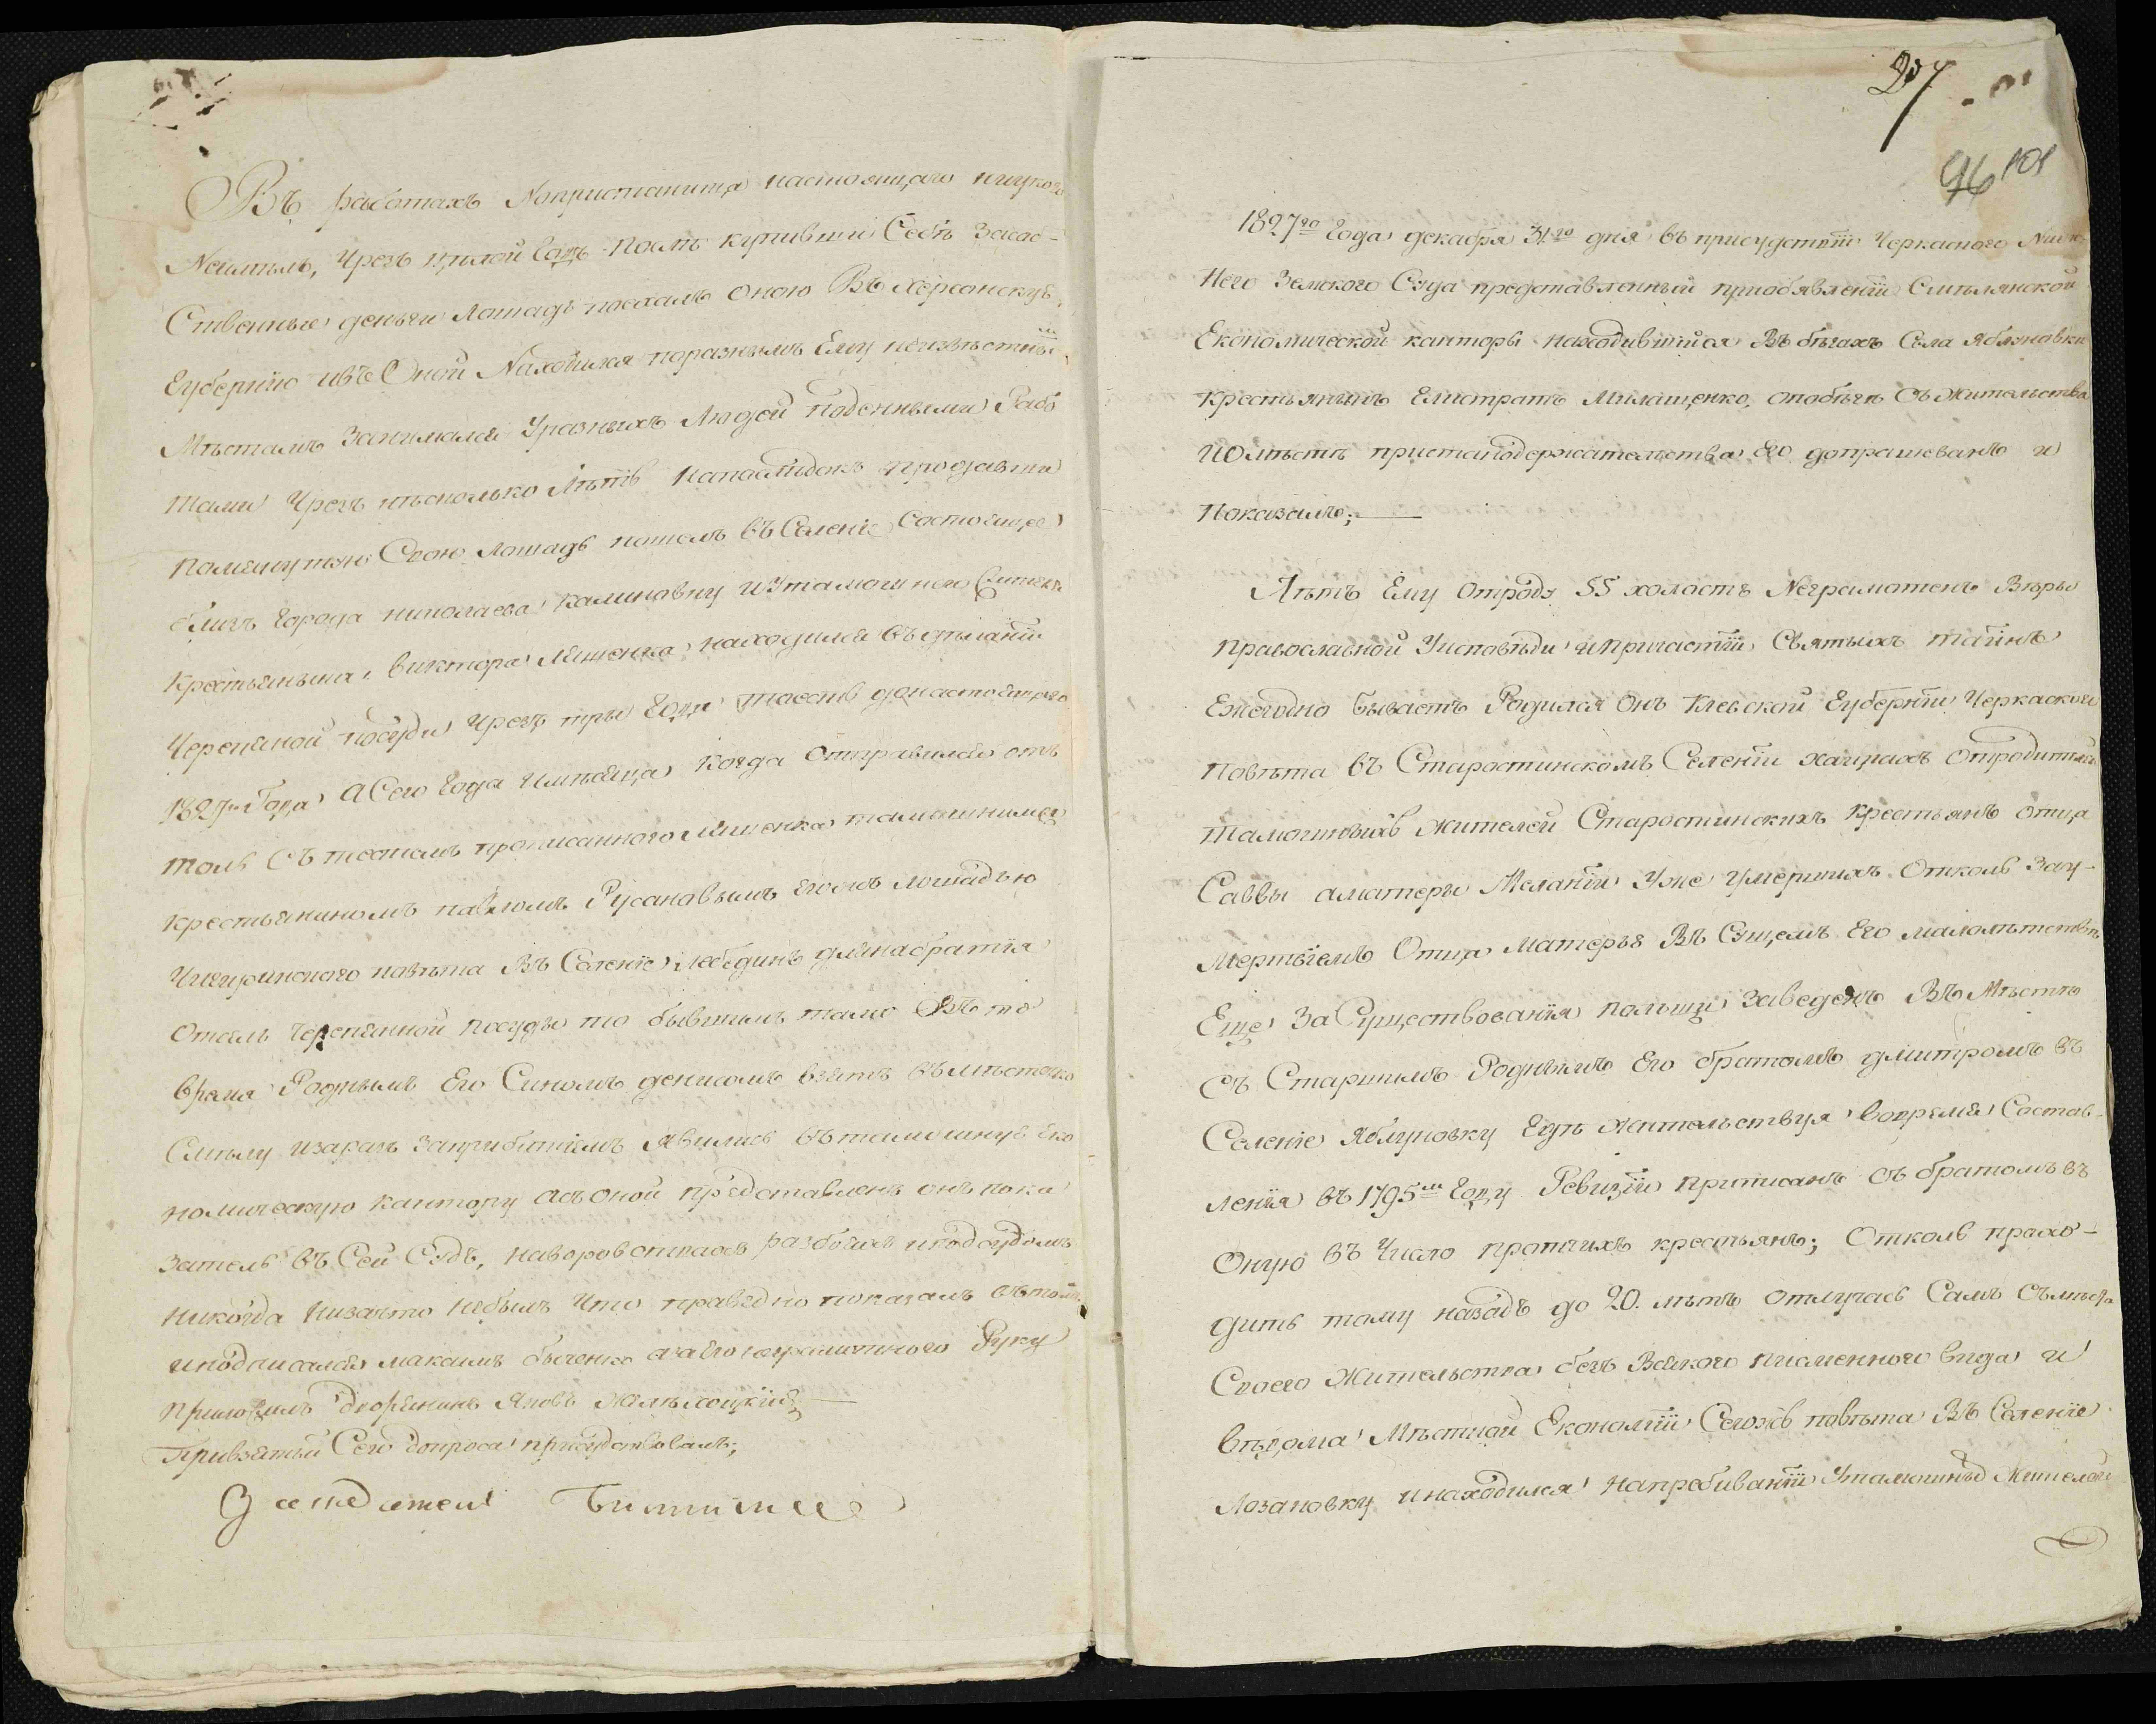 Въ работахъ Nопристанища настоящаго ниукого
Nеимелъ, Чрезъ целой Годъ послъ купивши Себъ Засоб-
Ственные деньги Лошадь поехалъ Оною Въ Херсонскую
Губернию ивъ Оной Nаходился поразнымъ Ему неизвъстны
Мъстамъ Занимался Уразныхъ Людей поденными Рабо
тами Чрезъ нъсколько Лътъ Напослъдокъ продавши
помянутую Свою Лошадь пошелъ въ Селение Состоящее
близь города николаева Калиновку иУтамошнего жителя
Крестьянына виктора Мишенка находился въ дъланіи
Черепяной посуды Чрезъ тры Года тоесть донастоящего
1827го Года АСего Года Имъяца когда Отправился отъ
толь Съ тестемъ прописанного Мишенка тамошнимъ
крестьяниномъ павломъ Русановымъ Егоюъ лошадью
Чигиринского повъта Въ Селение Лебединъ длянабратія
Отсель черепянной посуды то бывшимъ тамо Въ то
время Роднымъ Его Синомъ денисомъ взятъ въ мъстечко
Смълу изаразъ заприбитіемъ Явились въ тамошнюю Еко
номическую кантору асъ оной представленъ онъ пока
затель въ Сей Судъ, наворовствахъ разбояхъ иподсудомъ
никогда низачто небылъ Что праведно показалъ въ томъ
иподписался максимъ быченко аваего неграмотного Руку
приложилъ дворянинъ Яковъ
Привзятіи Сего допроса присудствовалъ;
Заседатель
27
96 101
1827го Года декабря 31го дня въ присудствіи Черкаского Nиж-
Него Земского Суда представленный приобявленіи Смълянской
Економической канторы находившійся Въ бъгахъ Села Яблуновки
крестьянинъ Елистратъ Милащенко, опобъгъ Съ Жительства
иОмъстъ пристанодержательства Его допрашеванъ и
показалъ;
Лътъ Ему отроду 55 холостъ Nеграмотенъ Въры
православной Уисповъди ипричастіи Святыхъ таинъ
Ежегодно бываетъ Родился Онъ Киевской Губерніи Черкаского
Повъта въ Старостинскомъ Селеніи хацкахъ Отродителей
тамошныхъ жителей Старостинскихъ Крестьянъ отца
Саввы аматеры Меланіи Уже Умершихъ Отколь Зау-
мертвіемъ Отца Матерья Въ Сущемъ Его малолътствъ
Еще За Существования польщи Заведенъ Въ Мъстъ
Съ Старшимъ Роднымъ Его братомъ дмитромъ въ
Селеніе Яблуновку Гдъ жительствуя вовремя Состав-
ленія въ 1795м Году Ревизіи приписанъ съ братомъ въ
Оную въ Число протчихъ крестьянъ; Отколь прахо-
дить тому назадъ до 20. лътъ отлучась Самъ Съмъста
Своего Жительства безъ Всякого писменного вида и
въдома Мъстной Економіи Сегожъ повъта Въ Селеніе
Лозановку инаходился напребиваніи Утамошныхъ Жителей